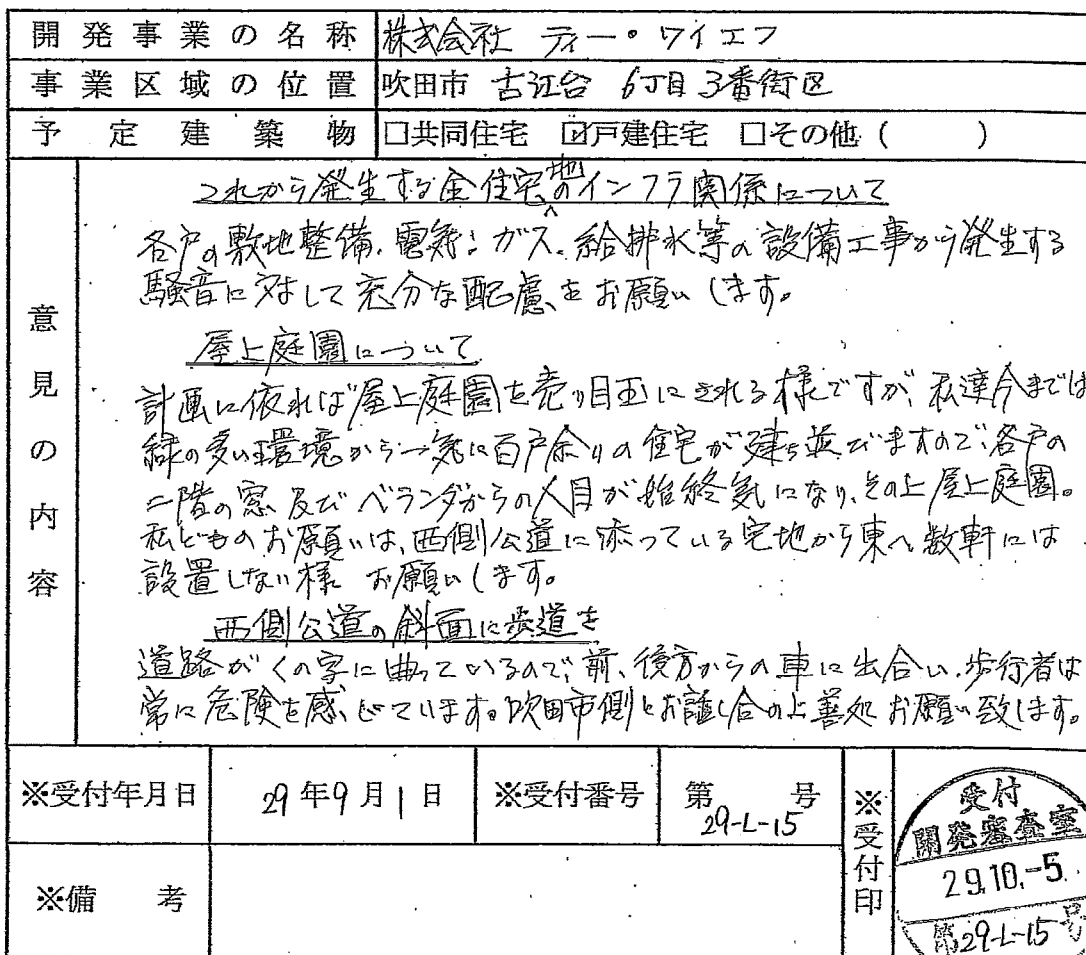 開発事業の名称 株式会社 ティー・ワイエフ
事業区域の位置 吹田市 古江台 6丁目3番街区
予定建築物 □共同住宅 ☑戸建住宅 □その他（　　）
意見の内容
これから発生する全住宅地のインフラ関係について
各戸の敷地整備、電気、ガス、給排水等の設備工事から発生する
騒音に対して充分な配慮をお願いします。
屋上庭園について
計画に依れば屋上庭園を売り目玉にされる様ですが、私達今までは
緑の多い環境から一気に百戸余りの住宅が建ち並びますので、各戸の
二階の窓及びベランダからの人目が始終気になり、その上屋上庭園。
私どものお願いは、西側公道に添っている宅地から東へ数軒には
設置しない様 お願いします。
西側公道の斜面に歩道を
道路がくの字に曲っているので、前、後方からの車に出合い、歩行者は
常に危険を感じています。吹田市側とお話し合の上善処お願い致します。
※受付年月日 29年9月1日 ※受付番号 第 29-L-15 号
※備考
※受付印
受付
開発審査室
29.10.-5
第29-L-15号